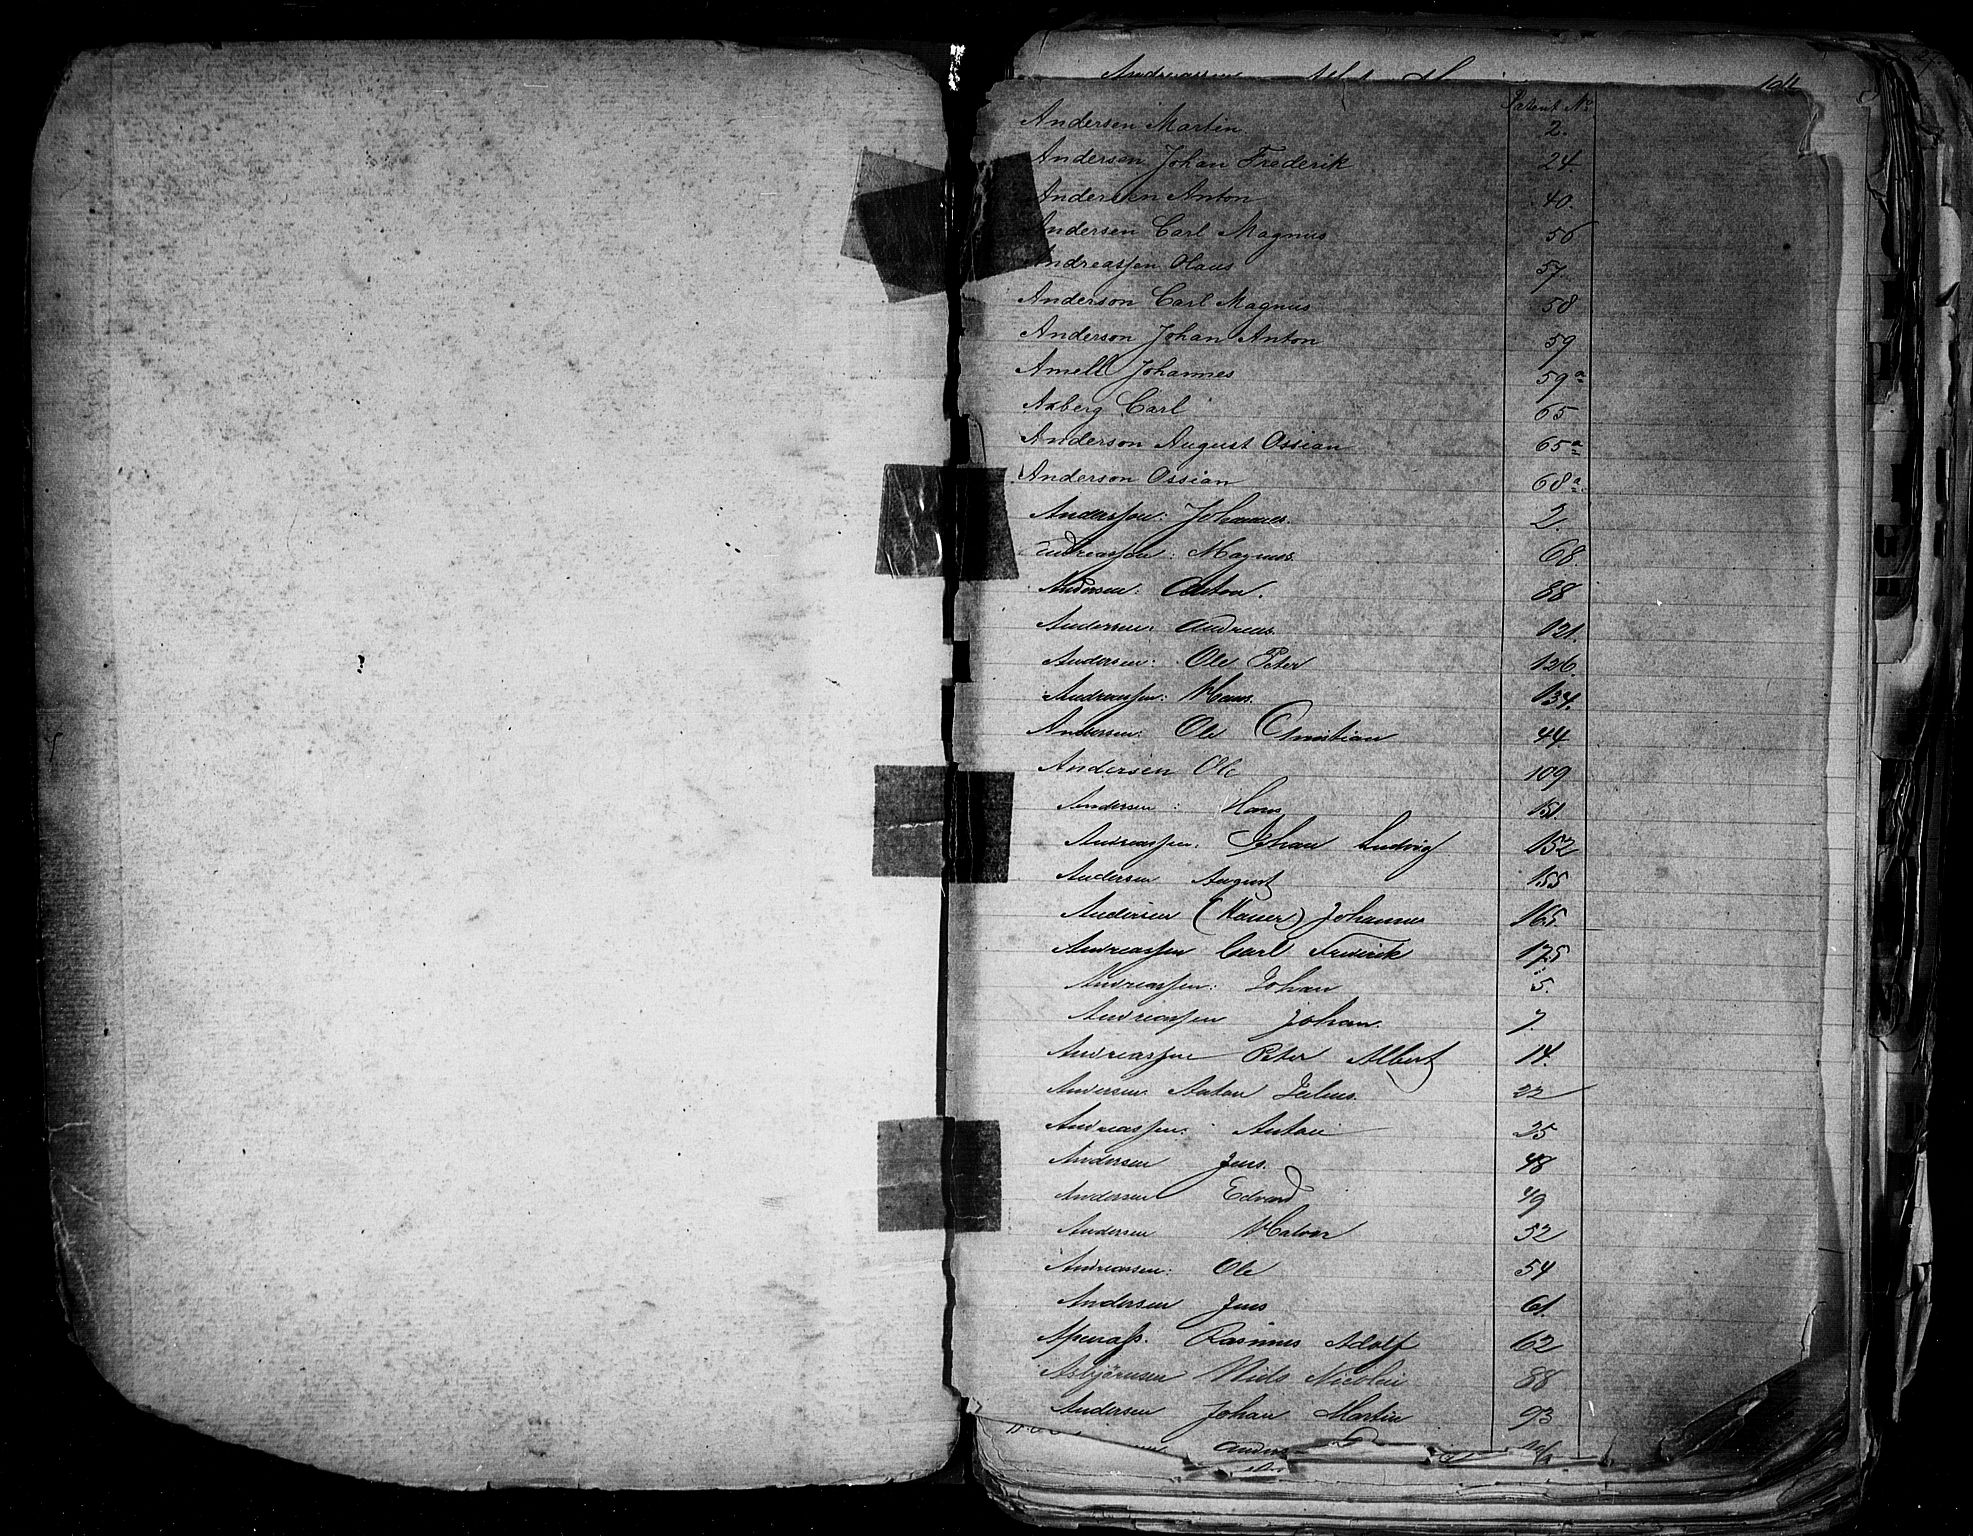 Andreassen
104
Patent No
Andersen Martin. 2.
Anderson Johan Frederik 24.
Andersen Anton 40.
Andersen Carl Magnus 56
Andreassen Claus 57.
Anderson Carl Magnus 58
Anderson Johan Anton 59
Amell Johannes 59a
Axberg Carl 65
Anderson August Ossian 65a
Anderson Ossian 68a
Anderssen: Johannes. 2.
Andreassen: Magnus. 68.
Andersen: Anton. 88
Andersen: Andreas. 121.
Andersen: Ole Peter 126.
Andreassen: Hans. 134.
Andersen: Ole Christian 44.
Andersen Ole 109
Andersen: Hans 151.
Andreassen: Johan Ludvig 152
Andersen August 155
Andersen (Hauer) Johannes 165.
Andreassen Carl Frederik 175
Andreassen: Johan 5.
Andreassen Johan. 7.
Andreassen Peter Albert 14.
Andersen Anton Julius. 22
Andreassen: Anton 25
Andersen Jens. 48
Andersen Edvard 49
Andersen Halvor 52
Andreassen: Ole 54
Andersen Jens 61.
Apenass. Rasmus Adolf 62
Asbjörnsen Niels Nicolai 88
Andersen Johan Martin 93
Anders